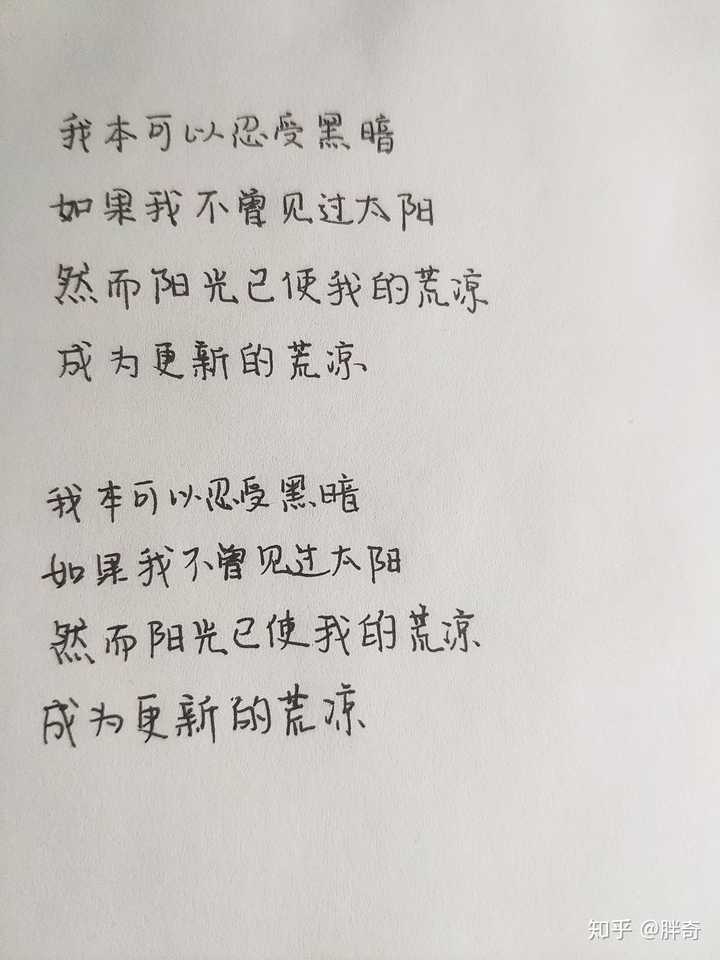 我本可以忍受黑暗
如果我不曾见过太阳
然而阳光已使我的荒凉
成为更新的荒凉
我本可以忍受黑暗
如果我不曾见过太阳
然而阳光已使我的荒凉
成为更新的荒凉
知乎 @胖奇